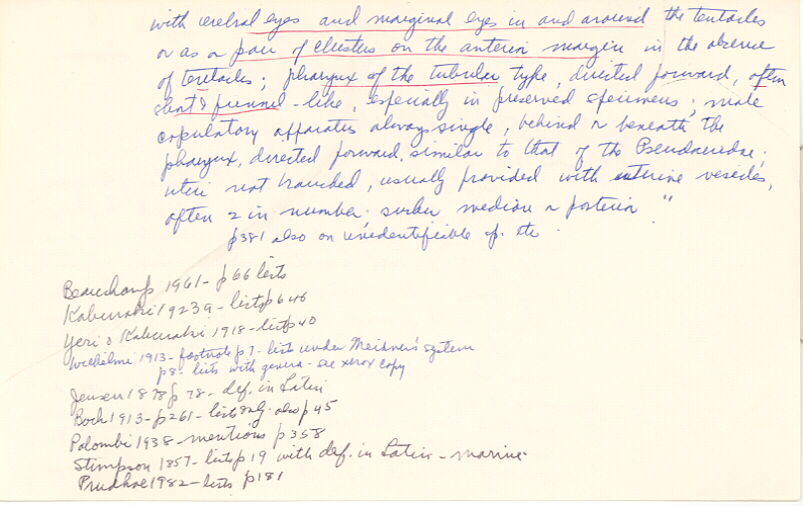 with cerebral eyes and marginal eyes in and around the tentacles
or as a pair of clusters on the anterior margin in the absence
of tentacles; pharynx of the tubular type, directed forward, often
short & funnel-like, especially in preserved specimens; male
copulatory apparatus always single, behind or beneath the
pharynx, directed forward, similar to that of the Pseudoceridae;
uteri not branched, usually provided with uterine vesicles,
often 2 in number; sucker median or posterior"
p381 also on unidentifiable sp. etc.
Beauchamp 1961 - p66 lists
Kaburaki 1923a - lists p646
Yeri & Kaburaki 1918 - list p40
Wilhelmi 1913 - footnote p7 - lists under Meixner's system
p8 - lists with genera - see xerox copy
Jensen 1878 p78 - def. in Latin
Bock 1913 - p261 - lists only. also p45
Palombi 1938 - mentions p358
Stimpson 1857 - lists p19 with def. in Latin - marine
Prudhoe 1982 - lists p181